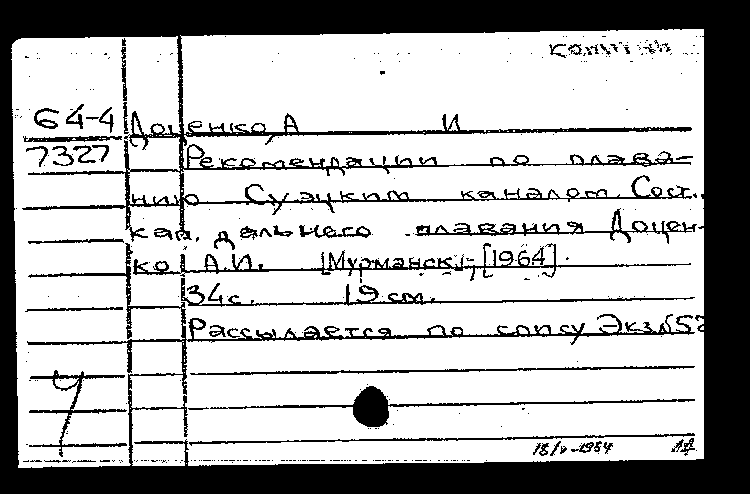 64-4 Доценко, А И
7327 Рекомендации по плава-
нию Суэцким каналом. Сост.
кап. дальнего плавания Доцен-
ко А.И. [Мурманск], [1964].
34с. 19 см.
Рассылается по спису Экз№52
18/V-1964